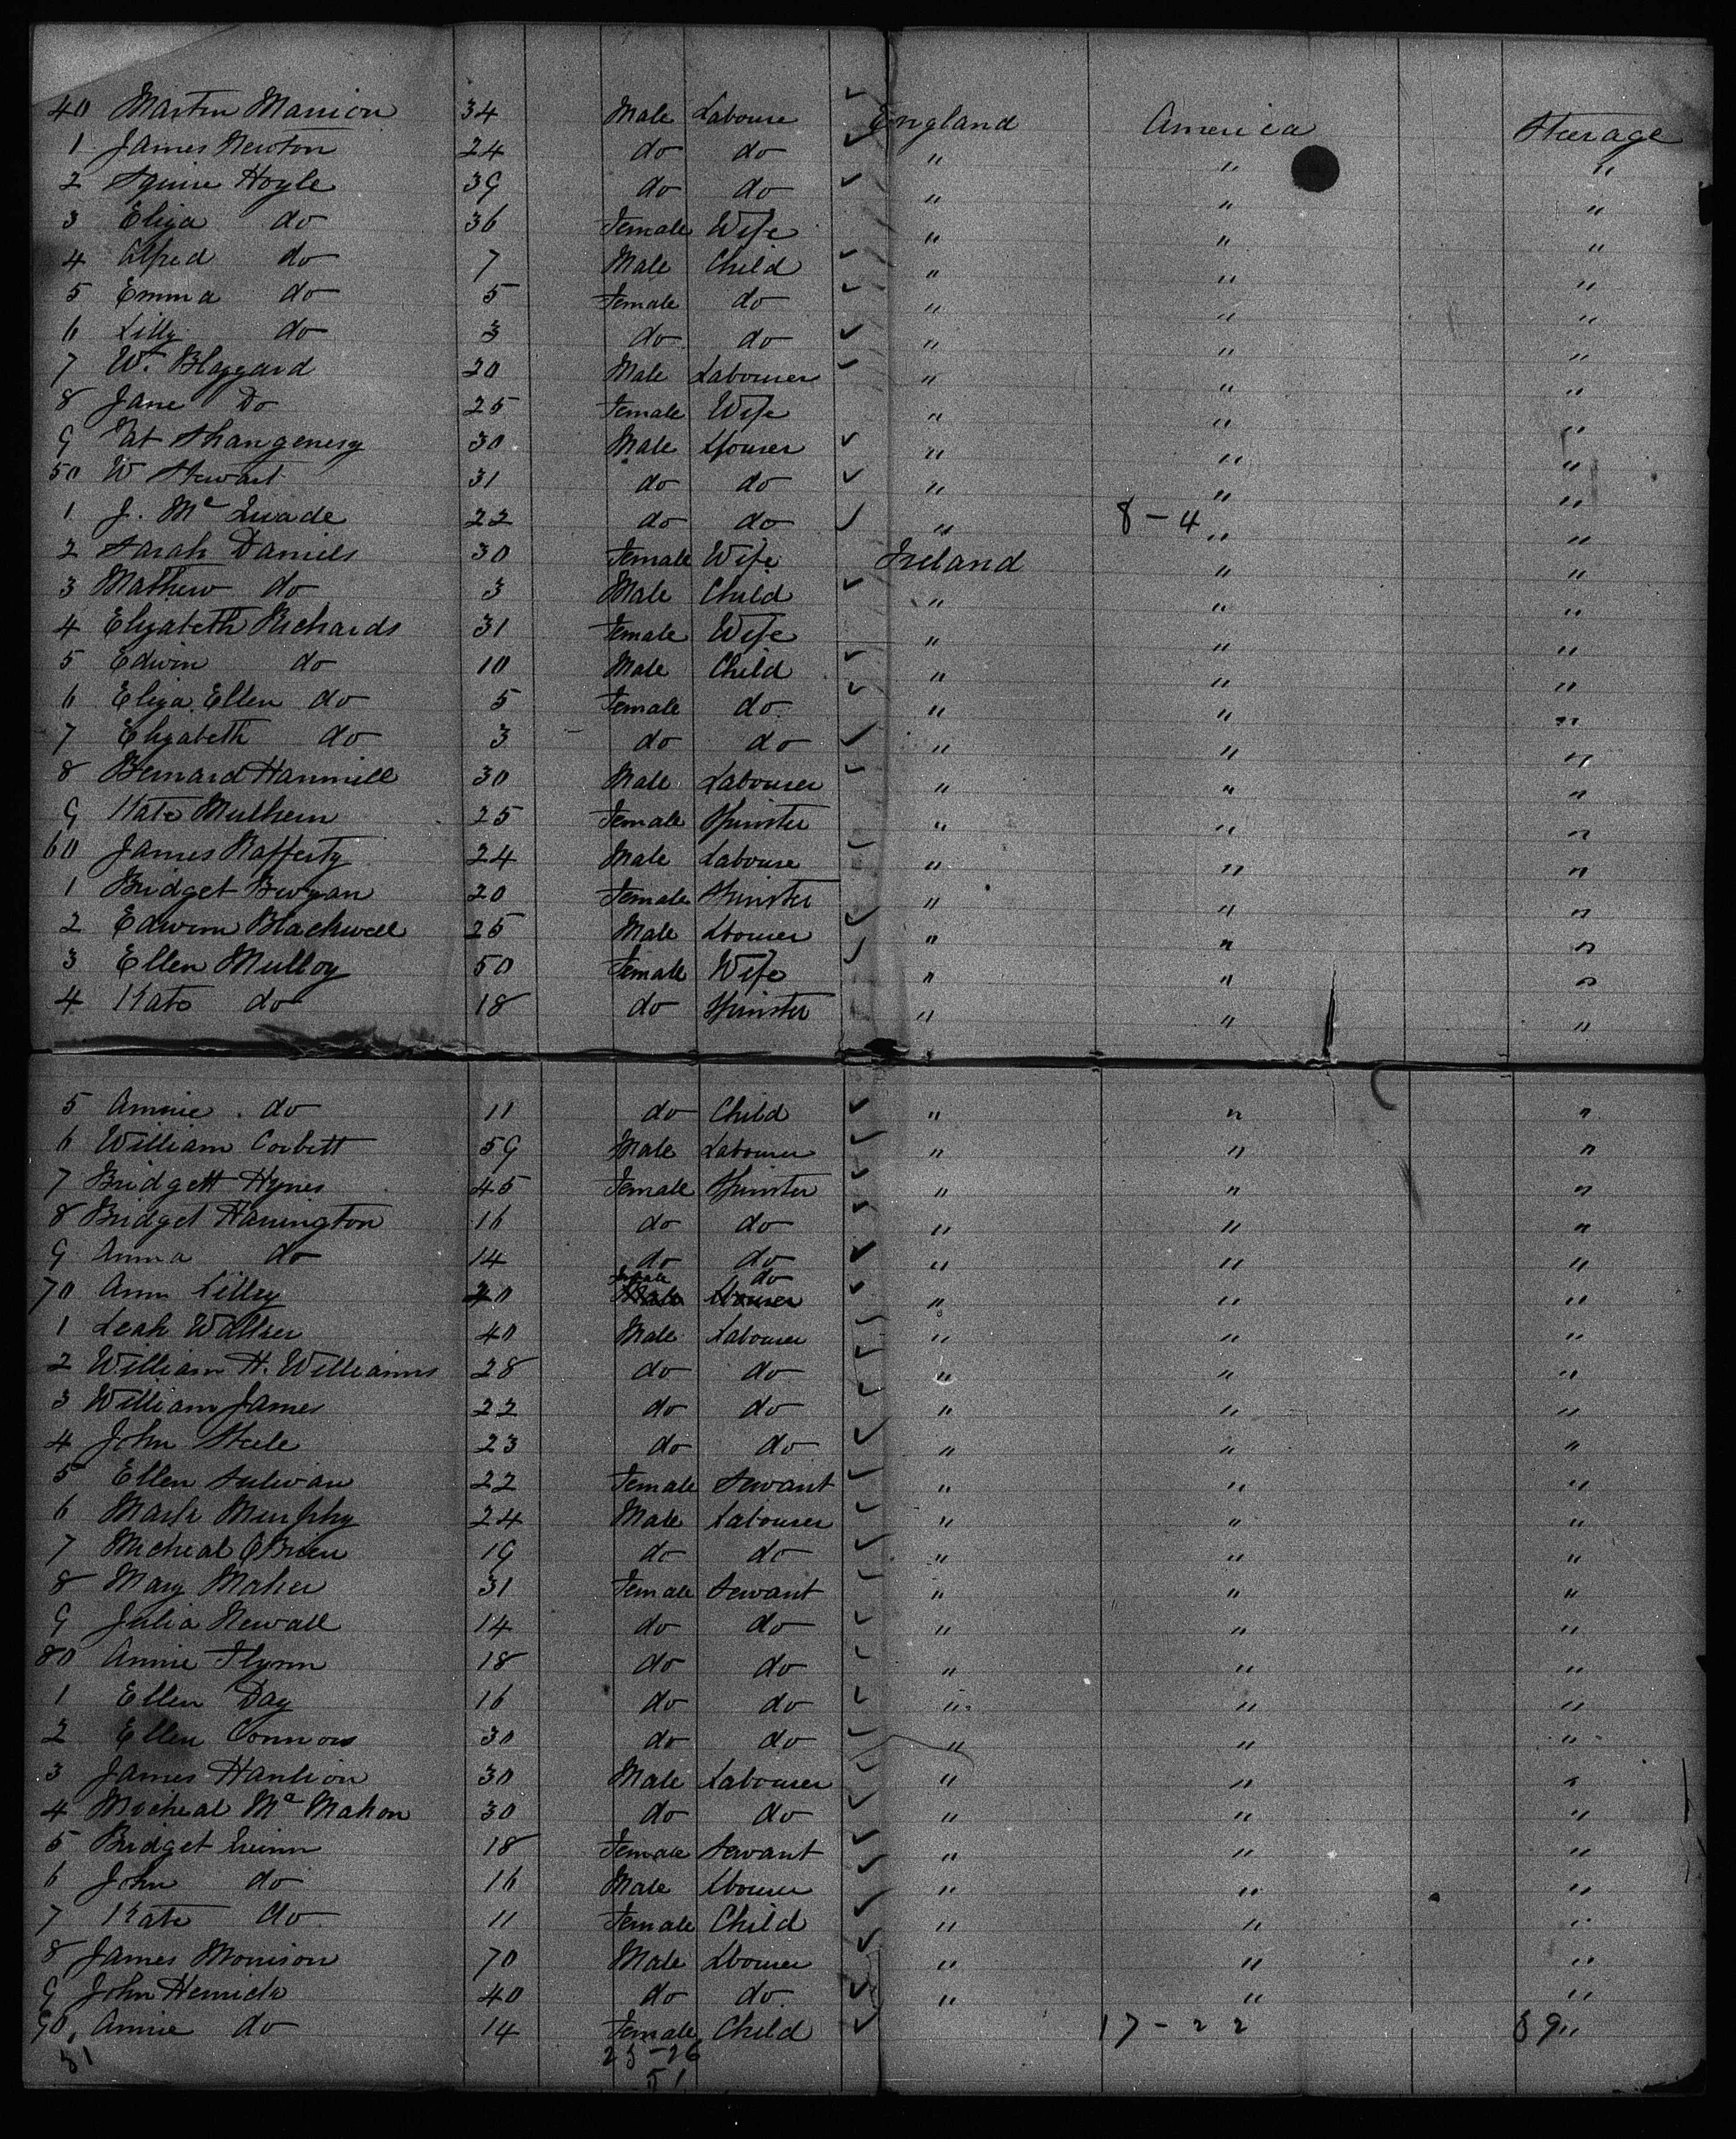 40 Martin Manion 34 Male Laboure England America Steerage
1 James Newton 24 do do " " "
2 Squire Hoyle 39 do do " " "
3 Eliza do 36 Female Wife " " "
4 Alfred do 7 Male Child " " "
5 Emma do 5 Female do " " "
6 Lilly do 3 do do " " "
7 W. Blaggard 20 Male Labourer " " "
8 Jane Do 25 Female Wife " " "
9 Pat 30 Male Lbourer " " "
50 W Stewart 31 do do " " "
1 J. Mc Quade 22 do do " 8-4 " "
2 Sarah Daniels 30 Female Wife Ireland " "
3 Mathew do 3 Male Child " " "
4 Elizabeth Richards 31 Female Wife " " "
5 Edwin do 10 Male Child " " "
6 Eliza Ellen do 5 Female do " " "
7 Elizabeth do 3 do do " " "
8 Bernard Hammill 30 Male Labourer " " "
9 Kate Mulhern 25 Female Spinster " " "
60 James Rafferty 24 Male Laboure " " "
1 Bridget 20 Female Spinster " " "
2 Edwin Blackwell 25 Male Lbourer " " "
3 Ellen Mulloy 50 Female Wife " " "
4 Kate do 18 do Spinster " " "
5 Annie do 11 do Child " " "
6 William Corbett 59 Male Labourer " " "
7 Bridgett Hynes 45 Female Spinster " " "
8 Bridget Harrington 16 do do " " "
9 Anna do 14 do do " " "
70 Ann Lilley 20 Female do " " "
1 Leah Walker 40 Male Labourer " " "
2 William H. Williams 28 do do " " "
3 William James 22 do do " " "
4 John Steele 23 do do " " "
5 Ellen Sulivan 22 Female Servant " " "
6 Mark Murphy 24 Male Labourer " " "
7 Micheal OBrien 19 do do " " "
8 Mary Maher 31 Female Servant " " "
9 Julia Newall 14 do do " " "
80 Annie Flynn 18 do do " " "
1 Ellen Day 16 do do " " "
2 Ellen Connors 30 do do " " "
3 James Hanlion 30 Male Labourer " " "
4 Micheal Mc Mahon 30 do do " " "
5 Bridget Quinn 18 Female Servant " " "
6 John do 16 Male Lbourer " " "
7 Kate do 11 Female Child " " "
8 James Morrison 70 Male Lbourer " " "
9 John Herrick 40 do do " " "
90 Annie do 14 Female Child 17-22 "
51 25-26
51